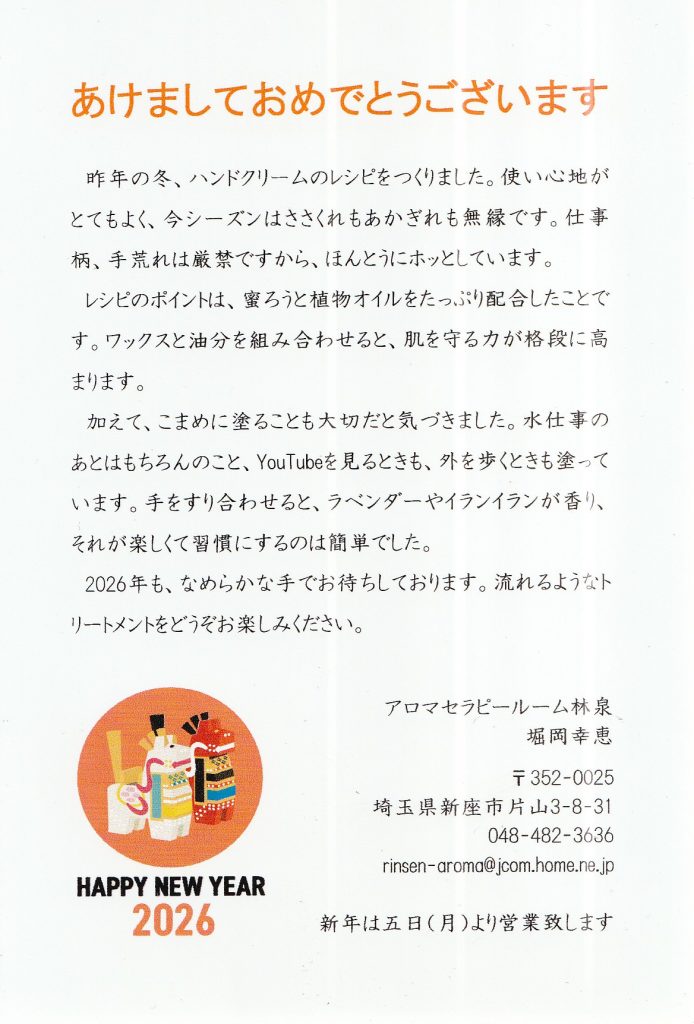 あけましておめでとうございます
昨年の冬、ハンドクリームのレシピをつくりました。使い心地が
とてもよく、今シーズンはささくれもあかぎれも無縁です。仕事
柄、手荒れは厳禁ですから、ほんとうにホッとしています。
レシピのポイントは、蜜ろうと植物オイルをたっぷり配合したことで
す。ワックスと油分を組み合わせると、肌を守る力が格段に高
まります。
加えて、こまめに塗ることも大切だと気づきました。水仕事の
あとはもちろんのこと、YouTubeを見るときも、外を歩くときも塗って
います。手をすり合わせると、ラベンダーやイランイランが香り、
それが楽しくて習慣にするのは簡単でした。
2026年も、なめらかな手でお待ちしております。流れるようなト
リートメントをどうぞお楽しみください。
アロマセラピールーム林泉
堀岡幸恵
〒352-0025
埼玉県新座市片山3-8-31
048-482-3636
rinsen-aroma@jcom.home.ne.jp
新年は五日(月)より営業致します
HAPPY NEW YEAR
2026